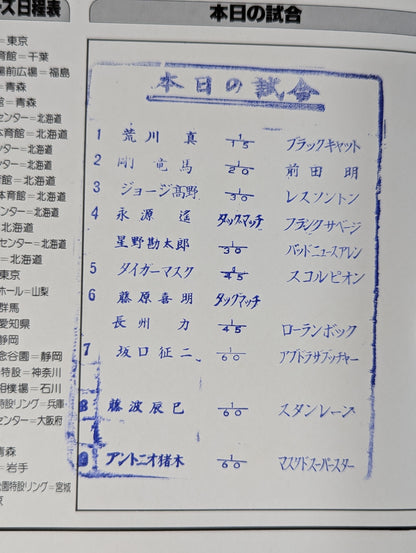 ズ日程表
本日の試合
＝東京
育館＝千葉
場前広場＝福島
＝青森
センター＝北海道
体育館＝北海道
ンター＝北海道
センター＝北海道
育館＝北海道
体育館＝北海道
ンター＝北海道
北海道
センター＝北海道
＝北海道
東京
ホール＝山梨
群馬
愛知県
静岡
念谷園＝静岡
特設＝神奈川
相撲場＝石川
特設リング＝兵庫
センター＝大阪府
青森
＝岩手
公園特設リング＝宮城
京
本日の試合
1 荒川 真 1/15 ブラックキャット
2 剛 竜馬 1/20 前田 明
3 ジョージ高野 1/30 レスソントン
4 永源 遙 タッグマッチ フランクサベージ
星野勘太郎 1/30 バッドニュースアレン
5 タイガーマスク 1/45 スコルピオン
6 藤原喜明 タッグマッチ
長州 力 1/45 ローランボック
7 坂口征二 1/60 アブドラザブッチャー
8 藤波辰巳 1/60 スタンレーン
9 アントニオ猪木 1/60 マスクドスーパースター